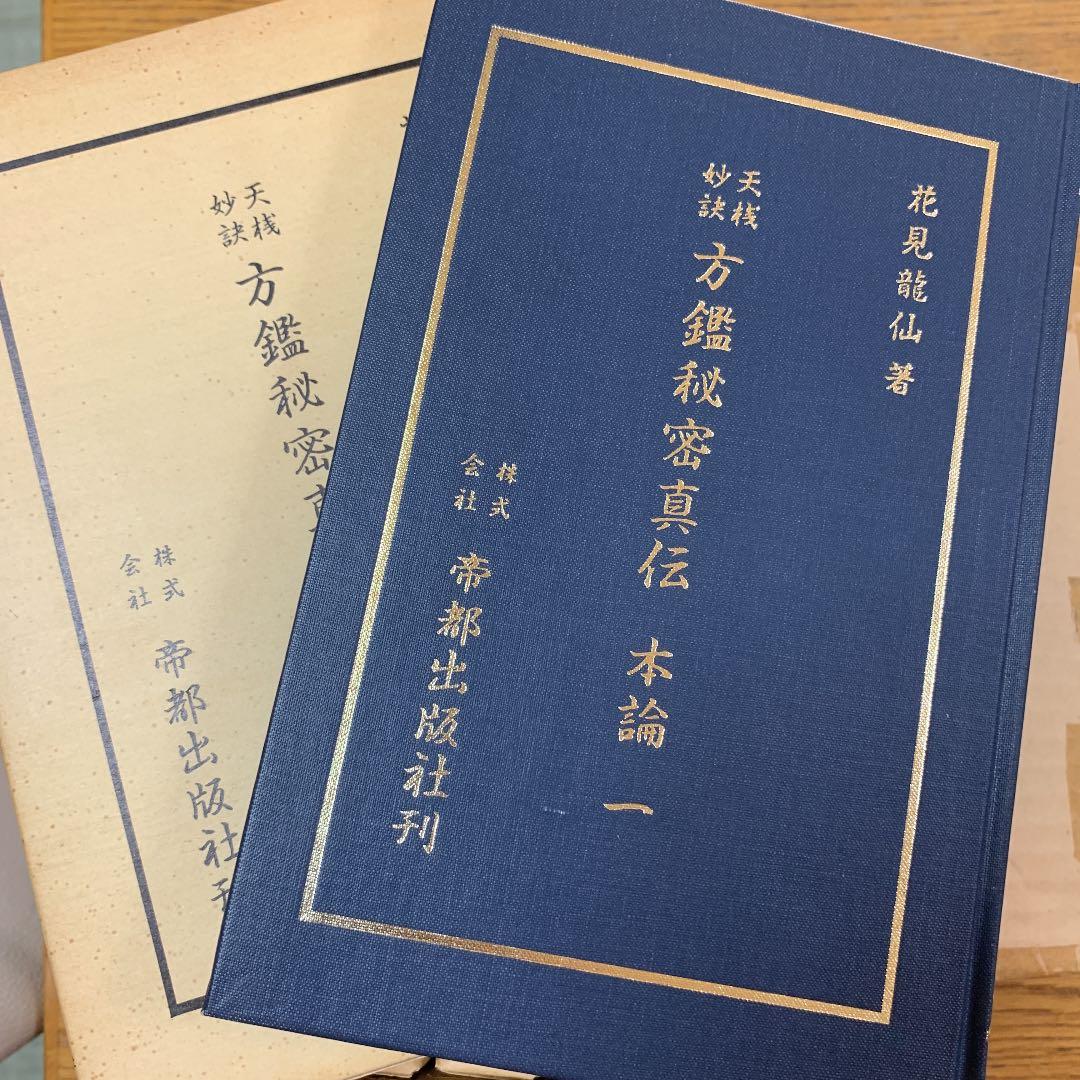 花見龍仙 著
天桟
妙訣
方鑑秘密真伝 本論 一
株式
会社
帝都出版社刊
天桟
妙訣
方鑑秘密
株式
会社
帝都出版社